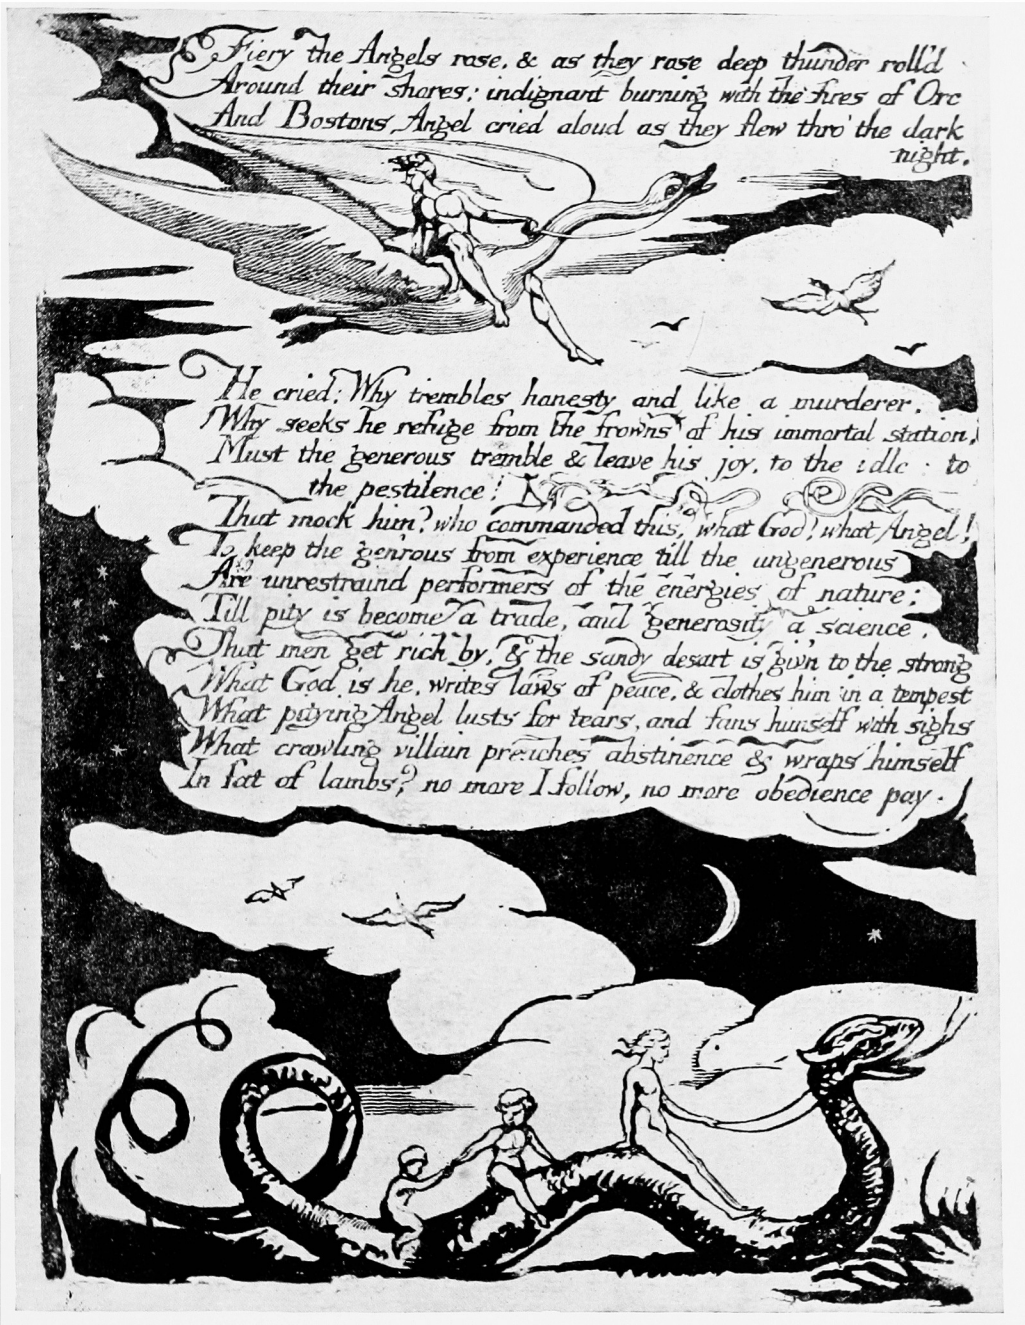 Fiery the Angels rose, & as they rose deep thunder roll'd
Around their shores: indignant burning with the fires of Orc
And Bostons Angel cried aloud as they flew thro' the dark
night.
He cried: Why trembles honesty and like a murderer,
Why seeks he refuge from the frowns of his immortal station!
Must the generous tremble & leave his joy, to the idle: to
the pestilence!
That mock him? who commanded this, what God! what Angel!
To keep the gen'rous from experience till the ungenerous
Are unrestraind performers of the energies of nature;
Till pity is become a trade, and generosity a science,
That men get rich by, & the sandy desart is giv'n to the strong
What God is he, writes laws of peace, & clothes him in a tempest
What pitying Angel lusts for tears, and fans himself with sighs
What crawling villain preaches abstinence & wraps himself
In fat of lambs? no more I follow, no more obedience pay.